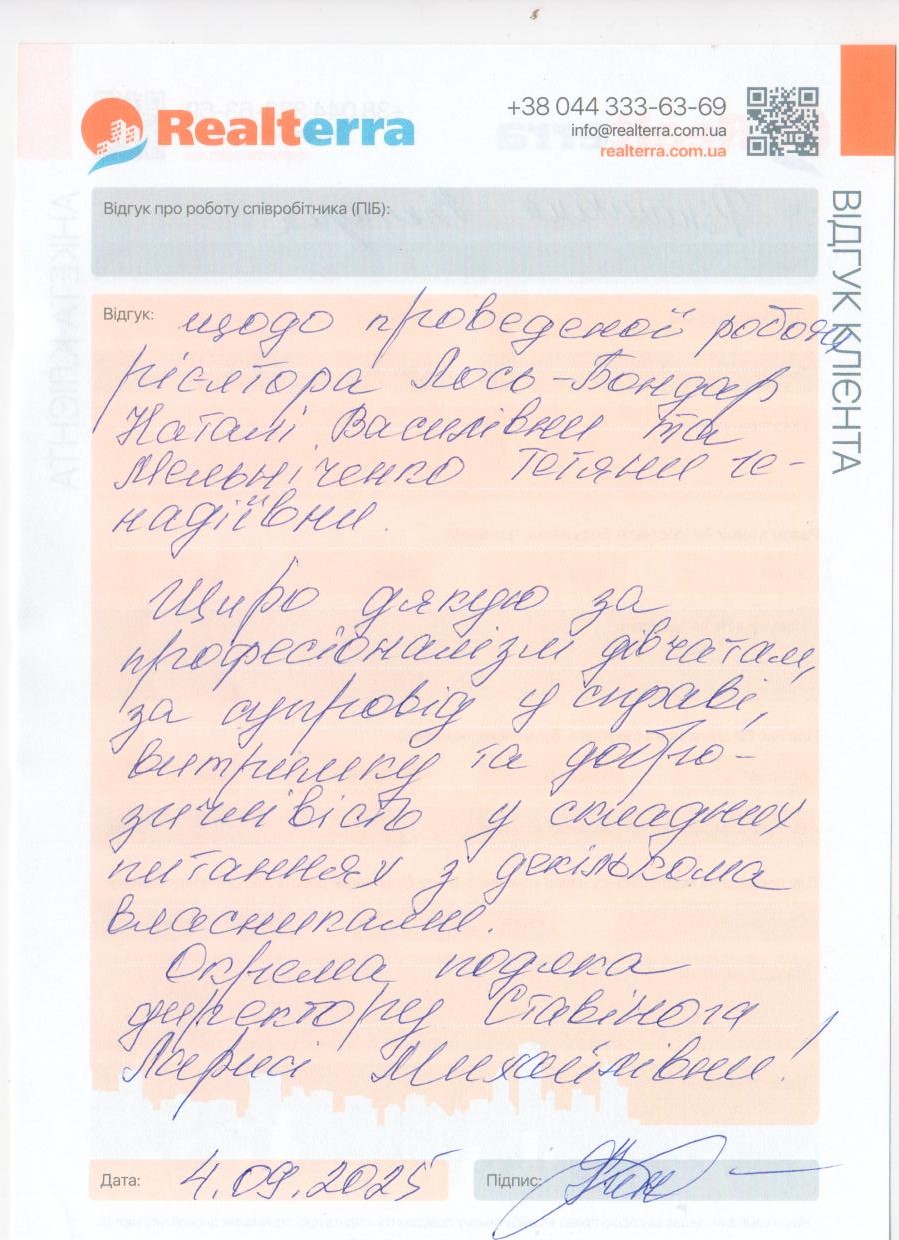 Realterra
+38 044 333-63-69
info@realterra.com.ua
realterra.com.ua
ВІДГУК КЛІЄНТА
Відгук про роботу співробітника (ПІБ):
Відгук:
щодо проведеної роботи
рієлтора Лось-Бондар
Наталі Василівни та
Мельніченко Тетяни Ге-
надіївни.
Щиро дякую за
професіоналізм дівчатам,
за супровід у справі,
витримку та добро-
зичливість у складних
питаннях з декількома
власниками.
Окрема подяка
директору Ставінога
Ларисі Михайлівни!
Дата: 4.09.2025
Підпис: